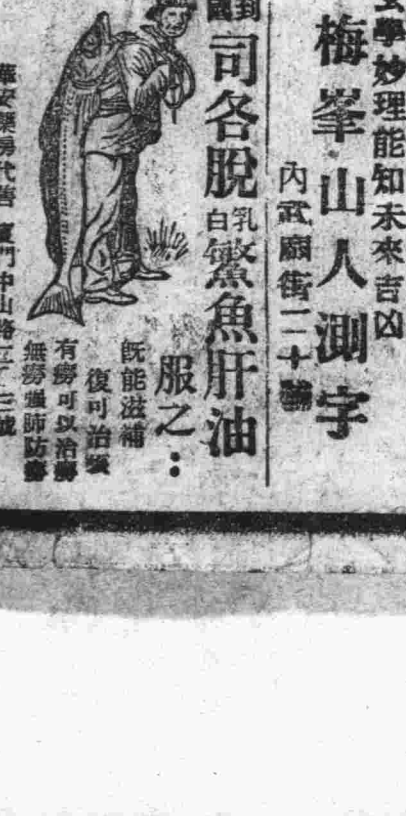 玄學妙理能知未來吉凶
梅峯山人測字
內武廟街二十號
到
國
司各脫
乳白
鱉魚肝油
服之：
既能滋補
復可治
有癆可以治癆
無癆強肺防癆
華安藥房代售 廈門中山路